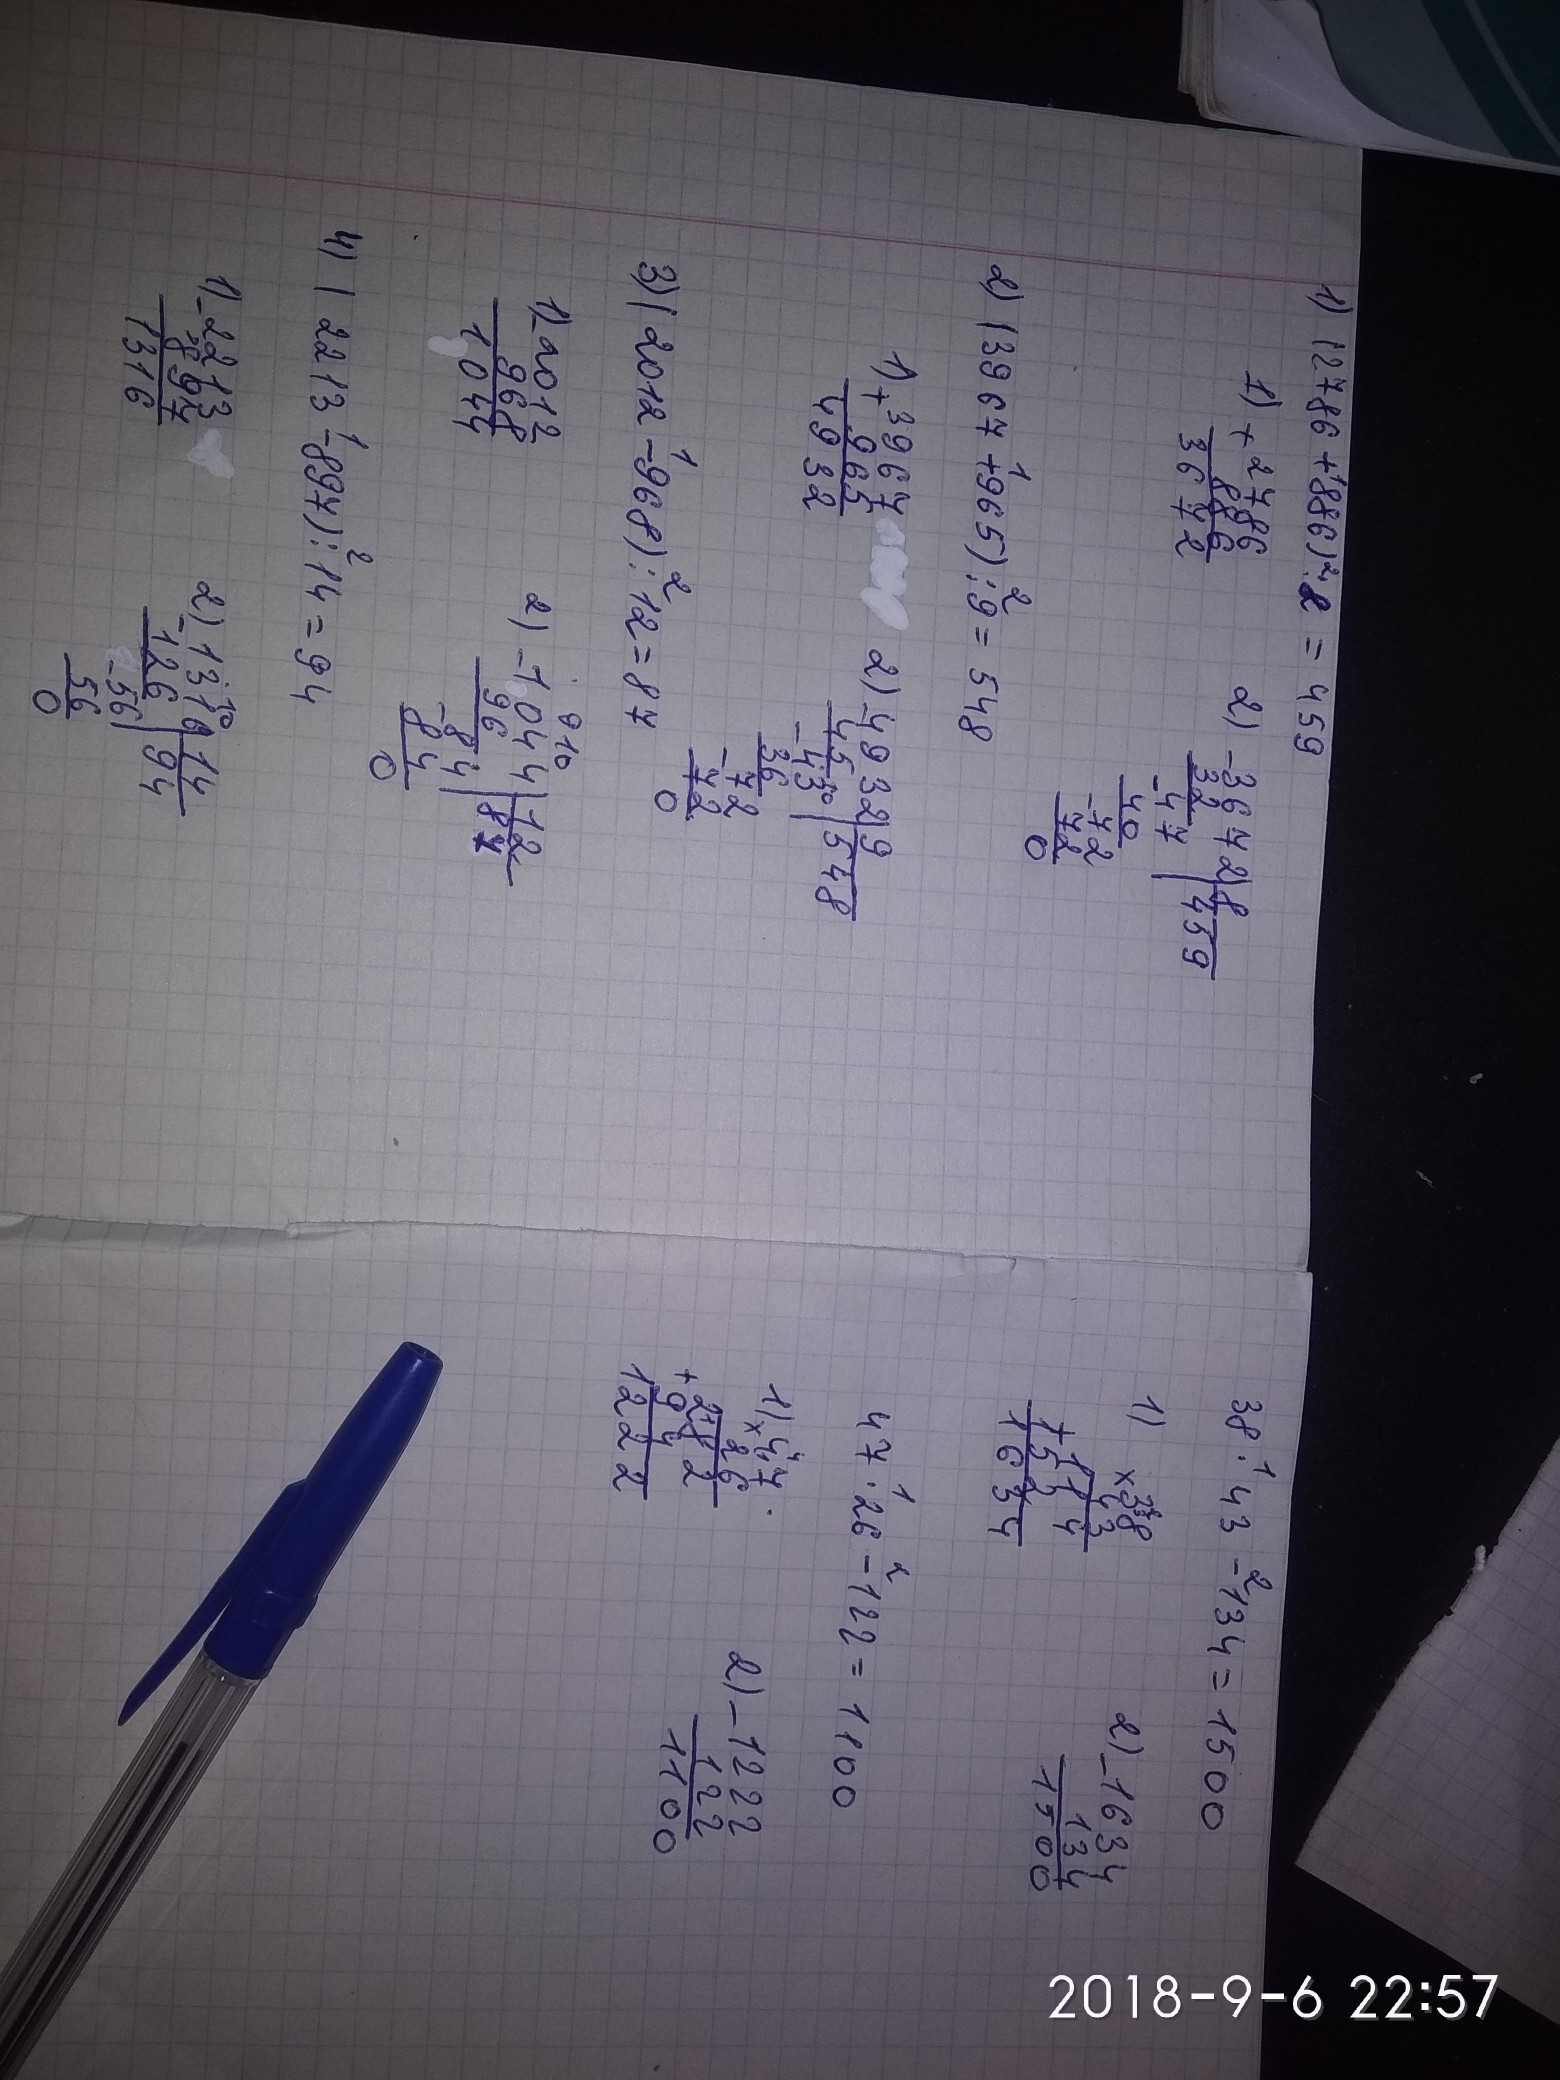 1) (2786 + 886) : 8 = 459
1) + 2786
886
3672
2) - 3672 | 8
32 | 459
- 47
40
- 72
72
0
2) (3967 + 965) : 9 = 548
1) + 3967
965
4932
2) - 4932 | 9
45 | 548
- 43
36
- 72
72
0
3) (2012 - 968) : 12 = 87
1) - 2012
968
1044
2) - 1044 | 12
96 | 87
- 84
84
0
4) (2213 - 897) : 14 = 94
1) - 2213
897
1316
2) - 1316 | 14
126 | 94
- 56
56
0
38 · 43 - 134 = 1500
1) × 38
43
114
+ 152
1634
2) - 1634
134
1500
47 · 26 - 122 = 1100
1) × 47
26
282
+ 94
1222
2) - 1222
122
1100
2018-9-6 22:57